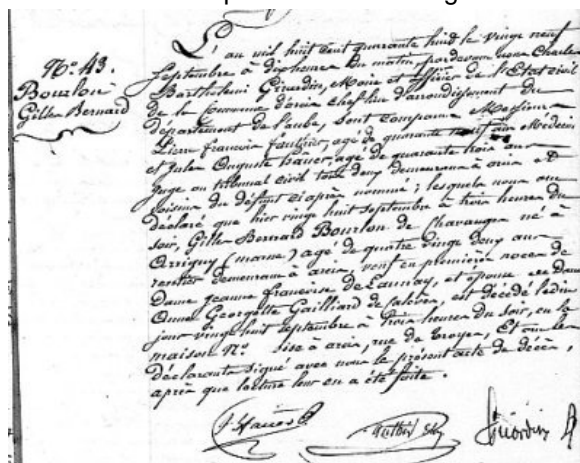 N.º 43.
Bourlon
Gilles Bernard
L'an mil huit cent quarante huit le vingt neuf
septembre à dix heures du matin, pardevant nous Charles
Barthelemi Girardin, Maire et officier de l'Etat civil
de la Commune d'arcis chef lieu d'arrondissement du
département de l'aube, sont comparus Messieurs
Pierre francois agé de quarante neuf ans Médecin
et Jules Auguste agé de quarante trois ans
Juge au tribunal civil tous deux demeurans à arcis et
voisins du défunt ci après nommé ; lesquels nous ont
déclaré que hier vingt huit septembre à trois heures du
soir, Gilles Bernard Bourlon de Chavanges né à
Arrigny (marne) agé de quatre vingt deux ans
rentier demeurant à arcis, veuf en premières noces de
Dame Jeanne francoise de Launay, et époux de Dame
Anne Georgette Gailliard de est décédé ledit
jour vingt huit septembre à trois heures du soir, en la
maison N.º sise à arcis, rue de troyes, Et ont les
déclarants signé avec nous le présent acte de décès,
après que lecture leur en a été faite.
Girardin